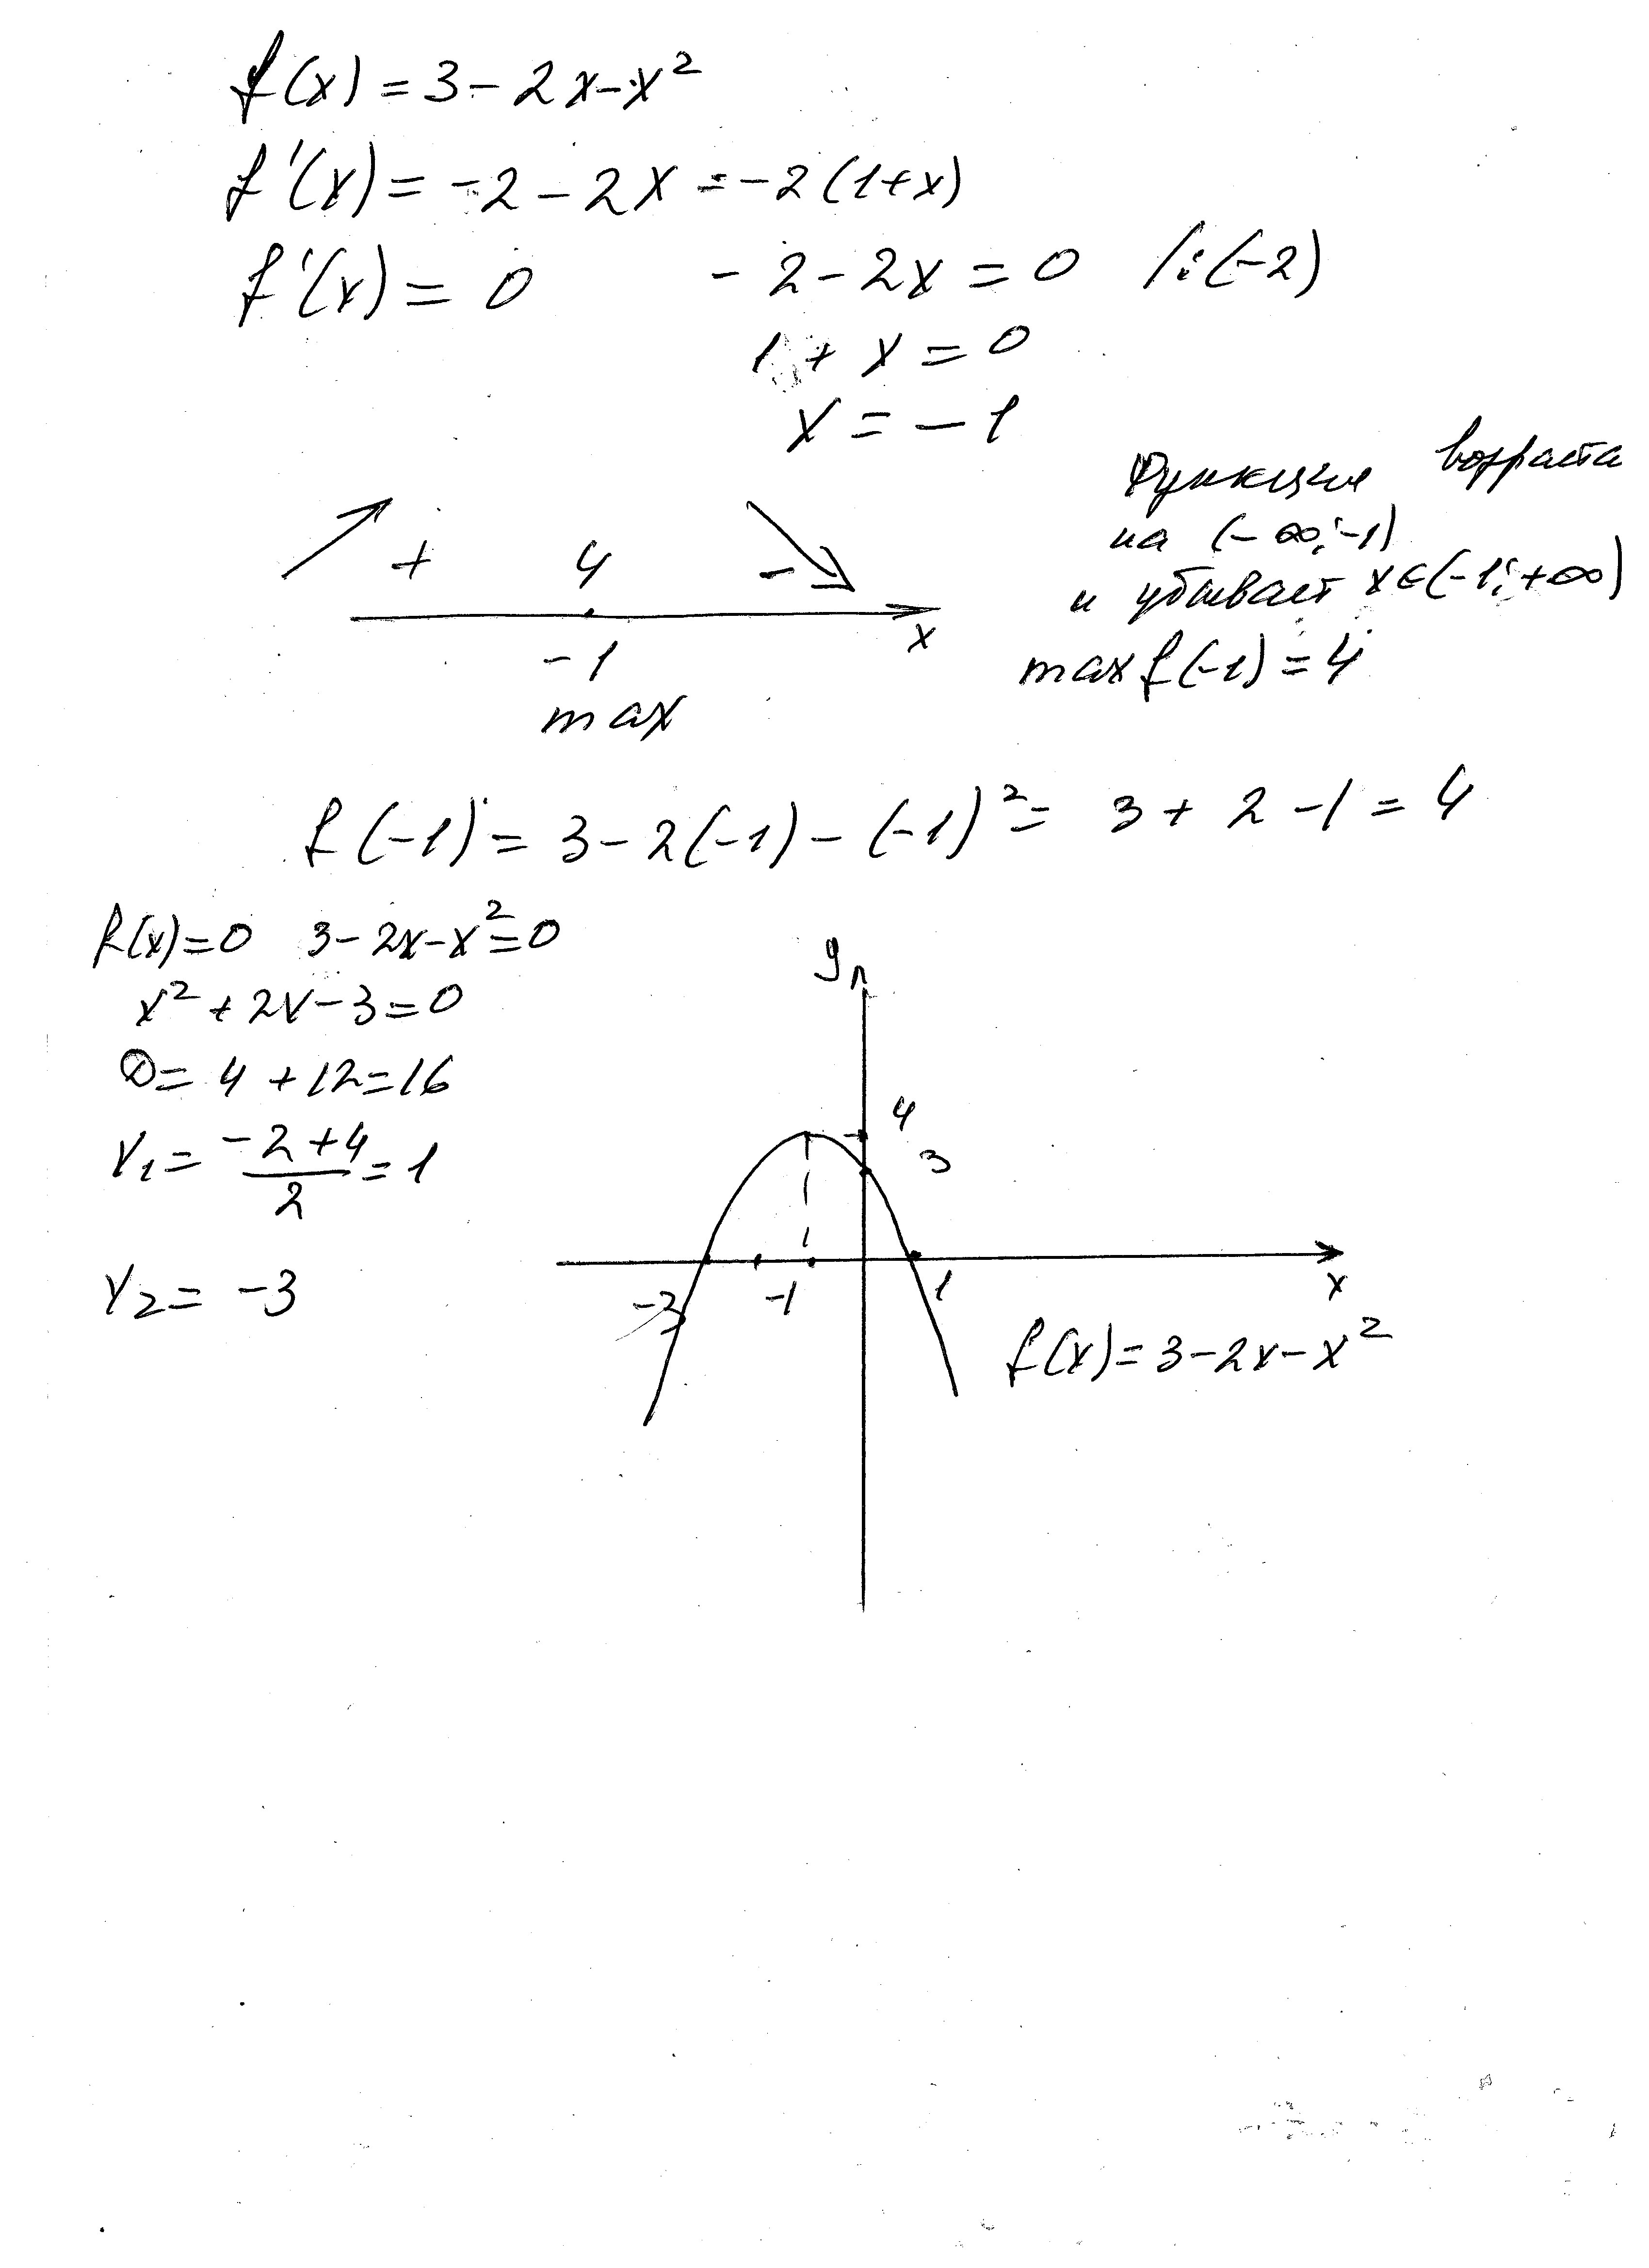 f(x) = 3 - 2x - x²
f'(x) = -2 - 2x = -2(1+x)
f'(x) = 0 -2 - 2x = 0 /:(-2)
1 + x = 0
x = -1
Функция возраста
на (-∞; -1)
и убывает x∈(-1; +∞)
max f(-1) = 4
+ 4 -
-1 x
max
f(-1) = 3 - 2(-1) - (-1)² = 3 + 2 - 1 = 4
f(x) = 0 3 - 2x - x² = 0
x² + 2x - 3 = 0
D = 4 + 12 = 16
x₁ = (-2 + 4)/2 = 1
x₂ = -3
y
4
3
-3 -1 1 x
f(x) = 3 - 2x - x²